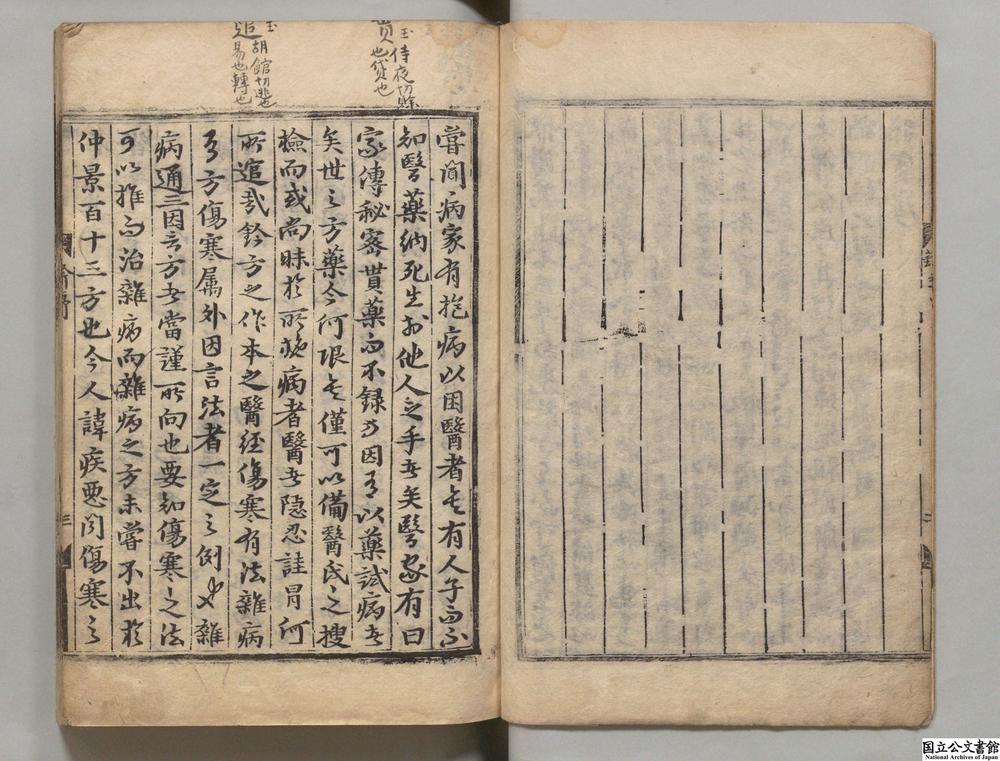 貰 玉 侍夜切賒
也貸也
逭 玉 胡館切逃也
易也轉也
嘗聞病家有抱病以困醫者矣有人子而不
知醫藥納死生於他人之手者矣醫家有曰
家傳秘密貰藥而不録方因有以藥試病者
矣世之方藥今何限矣僅可以備醫氏之搜
檢而或尚昧於所施病者醫者隠忍詿冐何
所逭哉鈐方之作本之醫経傷寒有法雜病
有方傷寒属外因言法者一定之例也雜
病通三因言方者當謹所向也要知傷寒之法
可以推而治雜病而雜病之方未嘗不出於
仲景百十三方也今人諱疾悪聞傷寒之
三
二
国立公文書館
National Archives of Japan